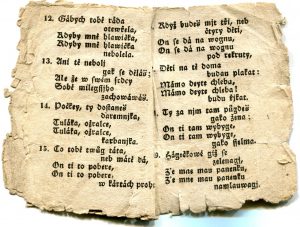 12. Gábych tobě ráda
otewřela,
Kdyby mně hlawička,
Kdyby mně hlawička
nebolela.
13. Ani tě nebolj
gak se děláš;
Ale že w swém srdcy
Sobě milegssjho
zachowáwáš.
14. Počkey, ty dostaneš
daremnjka,
Tuláka, ožralce,
Tuláka, ožralce,
karbanjka.
15. Co tobě twůg táta,
neb máte dá,
On ti to pobere,
On ti to pobere,
w kártách
Když budeš mjt tři, neb
čtyry děti,
On se dá na wognu,
On se dá na wognu
pod rekruty,
Děti na tě doma
budau plakat:
Mámo deyte chleba!
Mámo deyte chleba!
budu řjkat.
Ty za njm tam půgdeš
gako žena:
On ti tam wybyge,
On ti tam wybyge,
gako sselma.
Hágečkowé giž se
zelenagj,
Že mne mau panenku
Že mne mau panenku
namlauwagj.